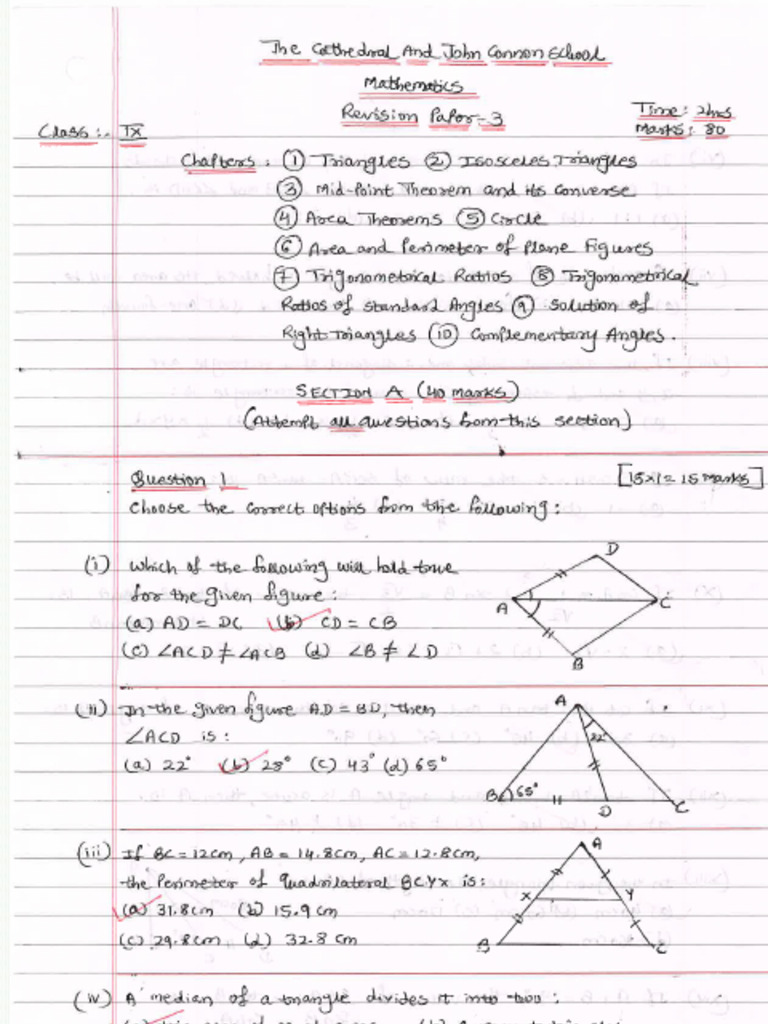 The Cathedral And John Connon School
Mathematics
Revision Paper-3
Time: 2hrs
Class:- IX
Marks: 80
Chapters: ① Triangles ② Isosceles Triangles
③ Mid-Point Theorem and its converse
④ Area Theorems ⑤ Circle
⑥ Area and Perimeter of Plane Figures
⑦ Trigonometrical Ratios ⑧ Trigonometrical
Ratios of standard Angles ⑨ Solution of
Right Triangles ⑩ Complementary Angles.
SECTION A (40 marks)
(Attempt all questions from this section)
Question 1
[15x1=15 Marks]
Choose the correct options from the following:
(i) Which of the following will hold true
for the given figure:
(a) AD = DC (b) CD = CB
(c) ∠ACD ≠ ∠ACB (d) ∠B ≠ ∠D
A B C D
(ii) In the given figure AD = BD, then
∠ACD is:
(a) 22° (b) 28° (c) 43° (d) 65°
A 22° B 65° D C
(iii) If BC = 12cm, AB = 14.8cm, AC = 12.8cm,
the Perimeter of quadrilateral BCYX is:
(a) 31.8cm (b) 15.9cm
(c) 29.8cm (d) 32.8cm
A X Y B C
(iv) A median of a triangle divides it into two: